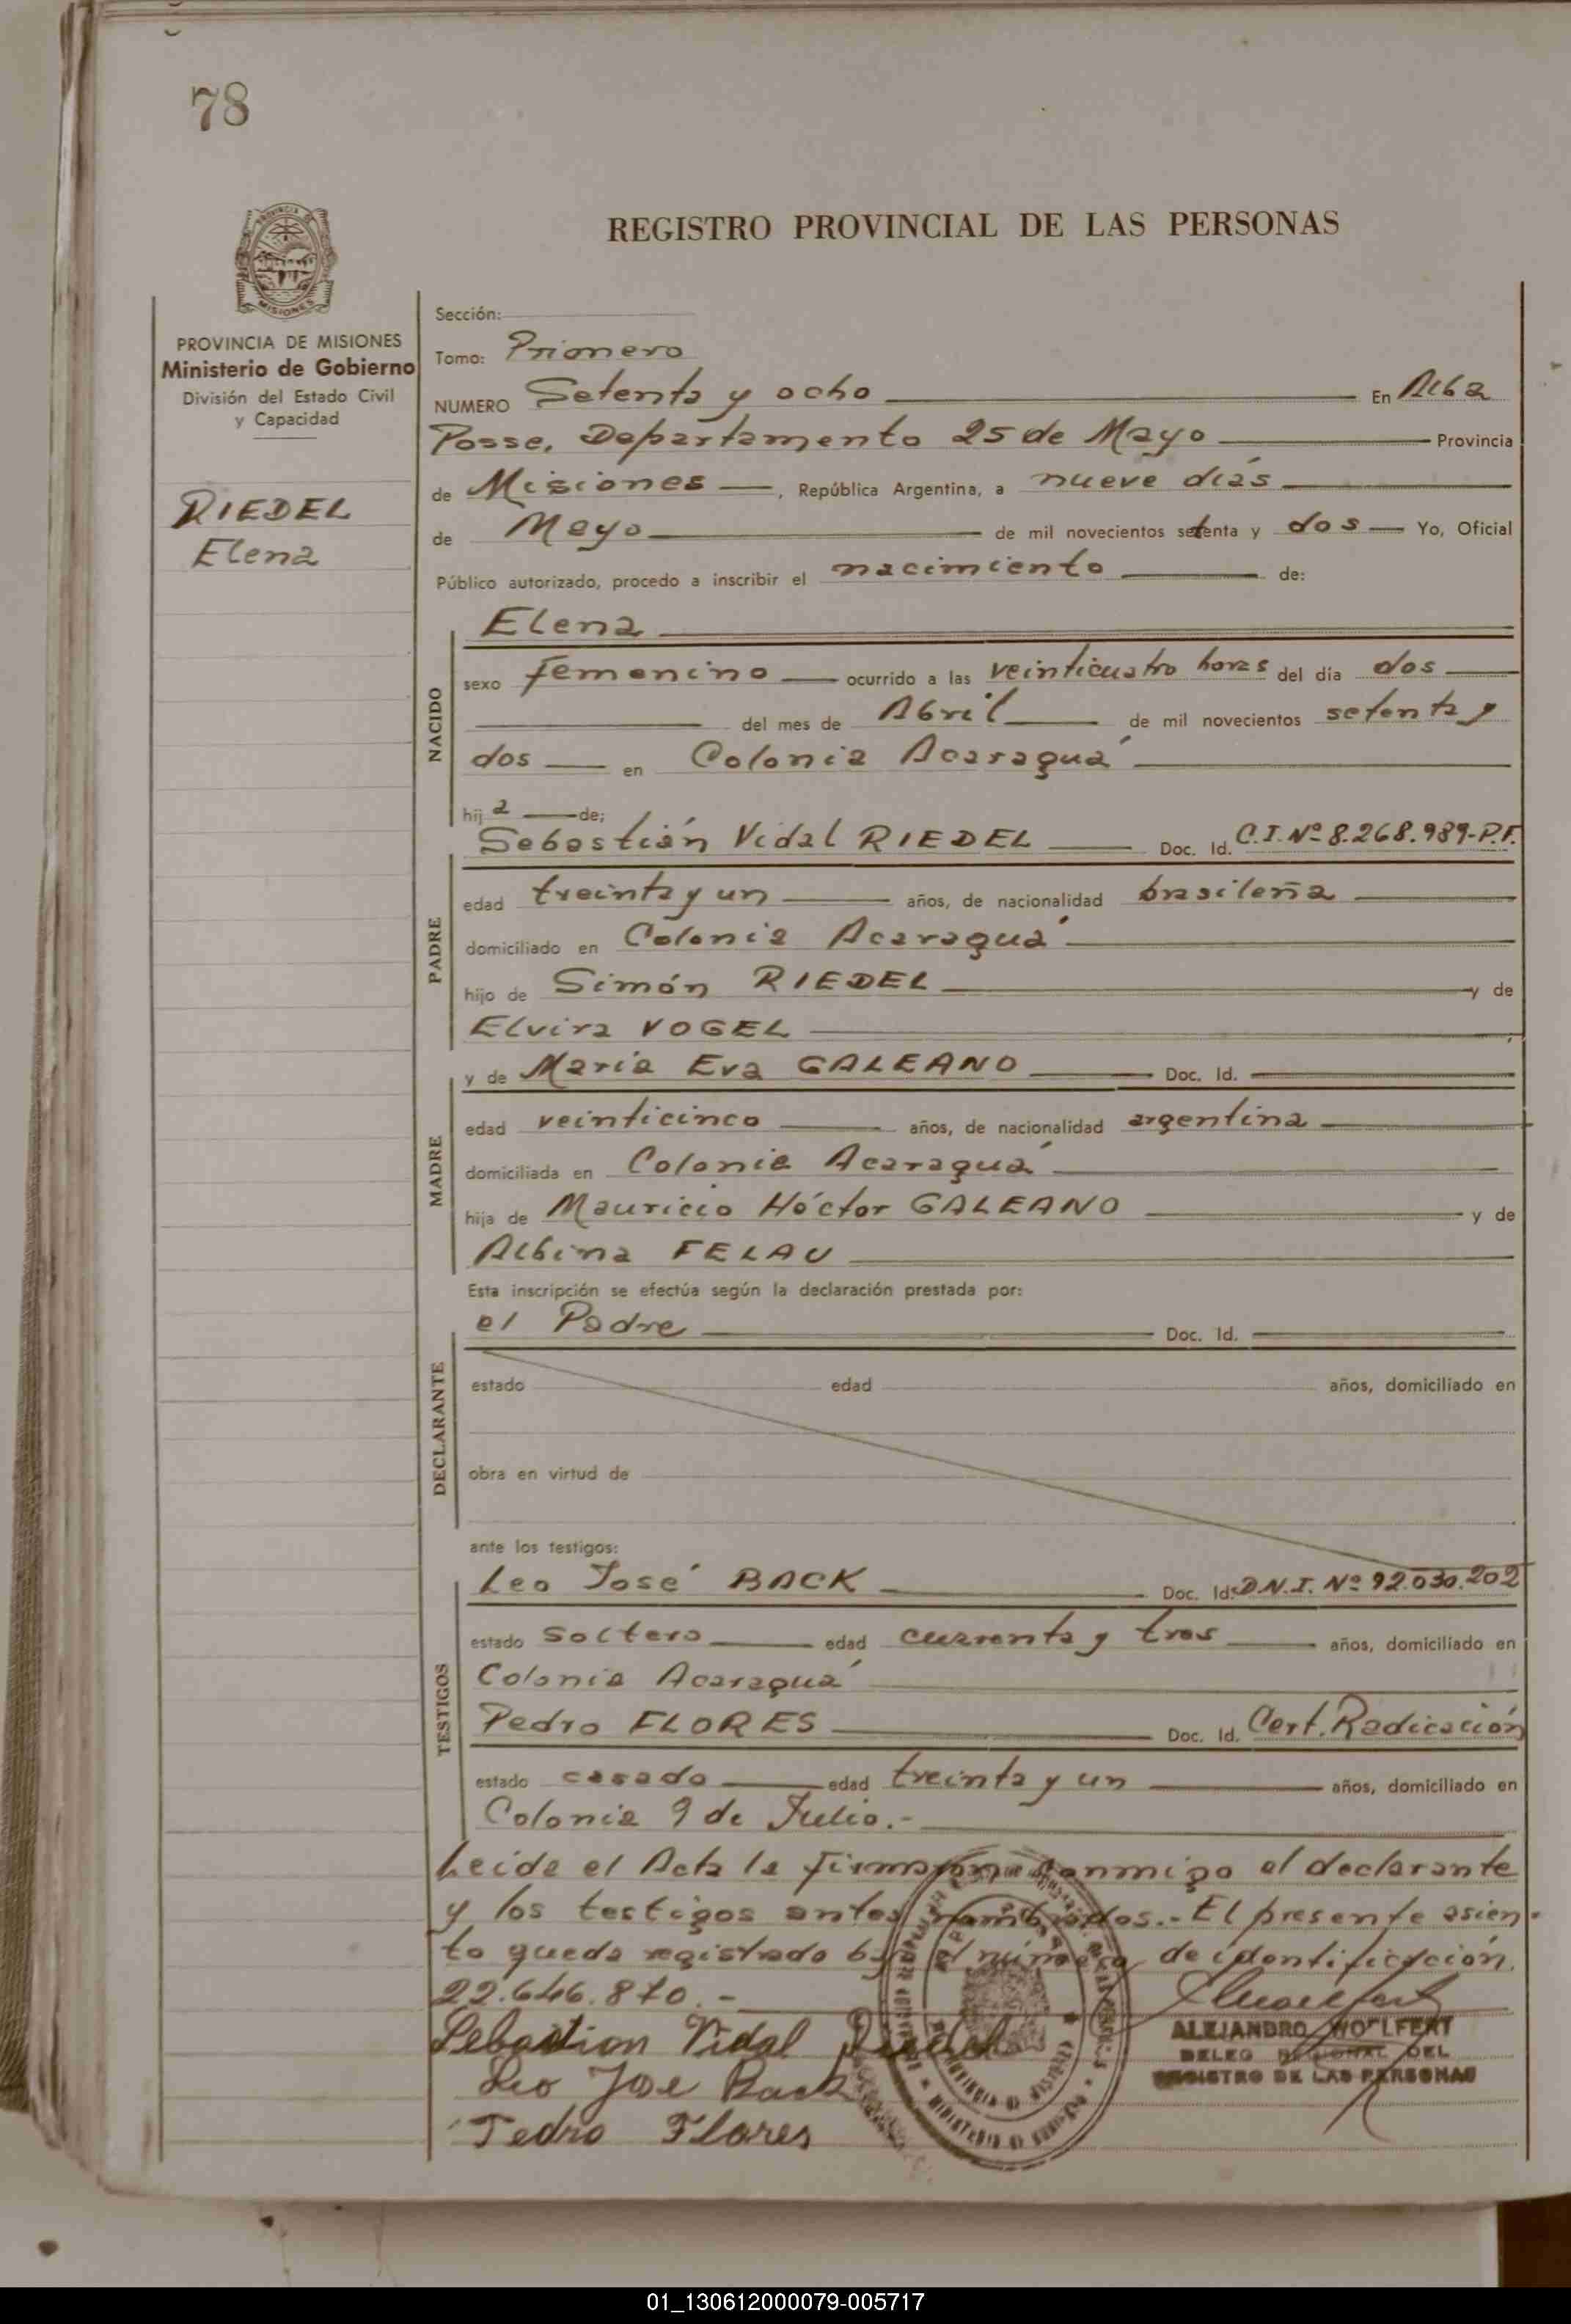 78
REGISTRO PROVINCIAL DE LAS PERSONAS
MISIONES
PROVINCIA DE MISIONES
Ministerio de Gobierno
División del Estado Civil
y Capacidad
RIEDEL
Elena
Sección:
Tomo: Primero
NUMERO Setenta y ocho En Alba
Posse, Departamento 25 de Mayo Provincia
de Misiones, República Argentina, a nueve días
de Mayo de mil novecientos setenta y dos Yo, Oficial
Público autorizado, procedo a inscribir el nacimiento de:
NACIDO
Elena
sexo femenino ocurrido a las veinticuatro horas del día dos
del mes de Abril de mil novecientos setenta y
dos en Colonia Acaraguá
hij a de;
PADRE
Sebastián Vidal RIEDEL Doc. Id. C.I. Nº 8.268.989-P.F.
edad treinta y un años, de nacionalidad brasileña
domiciliado en Colonia Acaraguá
hijo de Simón RIEDEL y de
Elvira VOGEL
MADRE
y de María Eva GALEANO Doc. Id.
edad veinticinco años, de nacionalidad argentina
domiciliada en Colonia Acaraguá
hija de Mauricio Héctor GALEANO y de
Albina FELAU
Esta inscripción se efectúa según la declaración prestada por:
DECLARANTE
el Padre Doc. Id.
estado edad años, domiciliado en
obra en virtud de
ante los testigos:
TESTIGOS
Leo José BACK Doc. Id. D.N.I. Nº 92.030.202
estado soltero edad cuarenta y tres años, domiciliado en
Colonia Acaraguá
Pedro FLORES Doc. Id. Cert. Radicación
estado casado edad treinta y un años, domiciliado en
Colonia 9 de Julio.-
Leida el Acta la firmaron conmigo el declarante
y los testigos antes nombrados.- El presente asien-
to queda registrado bajo el número de identificación
22.646.870.-
Sebastian Vidal Riedel
Leo Jose Back
Pedro Flores
ALEJANDRO WOLFERT
DELEG REGIONAL DEL
REGISTRO DE LAS PERSONAS
01_130612000079-005717